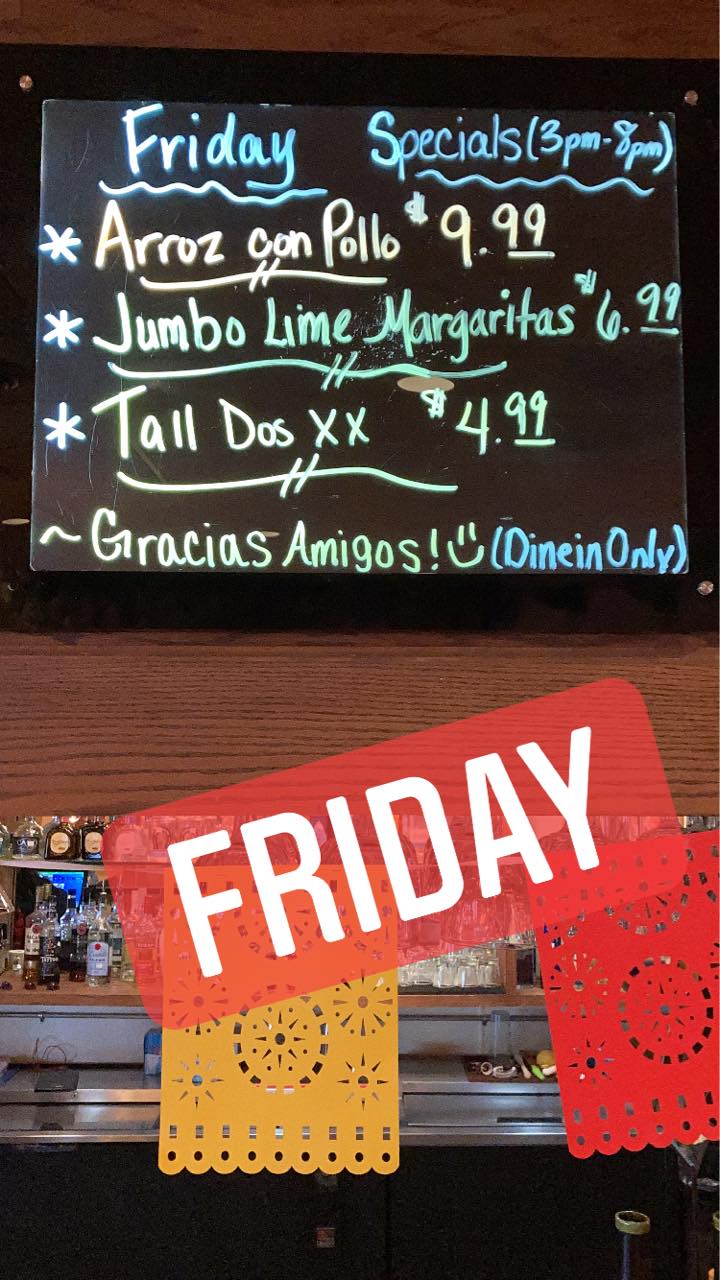 Friday Specials (3pm-8pm)
* Arroz con Pollo $9.99
* Jumbo Lime Margaritas $6.99
* Tall Dos XX $4.99
~ Gracias Amigos! (Dine in Only)
FRIDAY